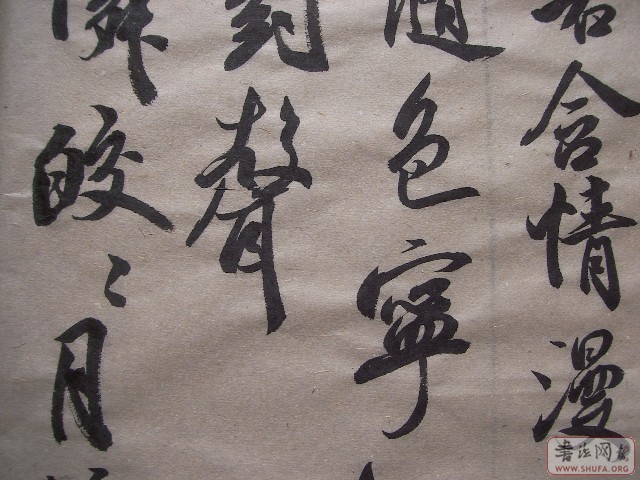 含情漫
隨色寧
對聲
皎々月
書法网
WWW.SHUFA.ORG